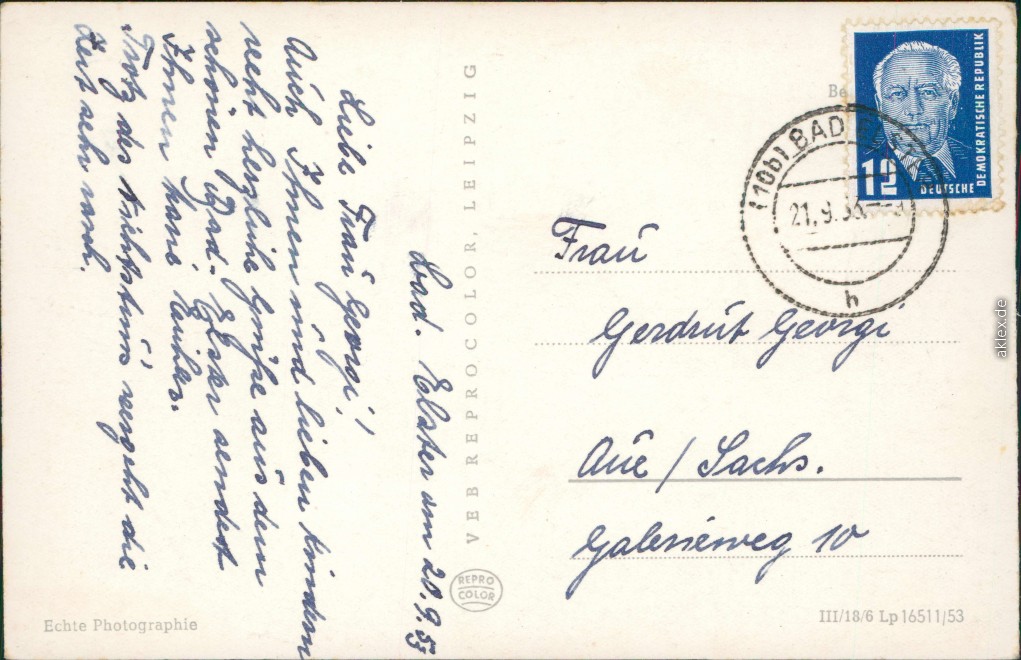 Bad. Elster am 20.9.53
Liebe Frau Georgi!
Auch Ihnen und lieben Kindern
recht herzliche Grüße aus dem
schönen Bad-Elster sendet
Ihnen Hans
Trotz des vergeht die
Zeit sehr rasch.
VEB REPROCOLOR, LEIPZIG
REPRO
COLOR
Echte Photographie
Be
12
DEUTSCHE
DEMOKRATISCHE REPUBLIK
(10b) BAD
21.9.53
h
Frau
Gerdrut Georgi
Aue / Sachs.
Galerieweg 10
III/18/6 Lp 16511/53
aklex.de